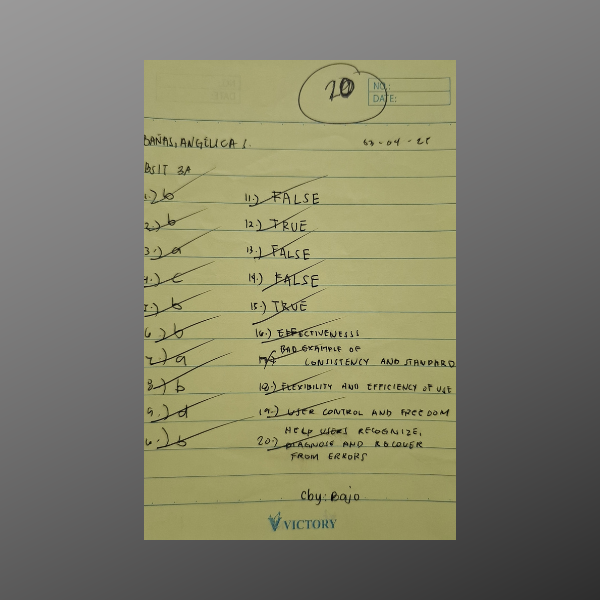 20
NO.:
DATE:
BAÑAS, ANGELICA S.
BSIT 3A
1.) b 11.) FALSE
2.) b 12.) TRUE
3.) a 13.) FALSE
4.) c 14.) FALSE
5.) b 15.) TRUE
6.) b 16.) EFFECTIVENESSS
BAD EXAMPLE OF
7.) a 17. CONSISTENCY AND STANDARD
8.) b 18.) FLEXIBILITY AND EFFICIENCY OF USE
9.) d 19.) USER CONTROL AND FREEDOM
HELP USERS RECOGNIZE,
b 20.) DIAGNOSE AND RECOVER
FROM ERRORS
Cby: Bajo
VICTORY